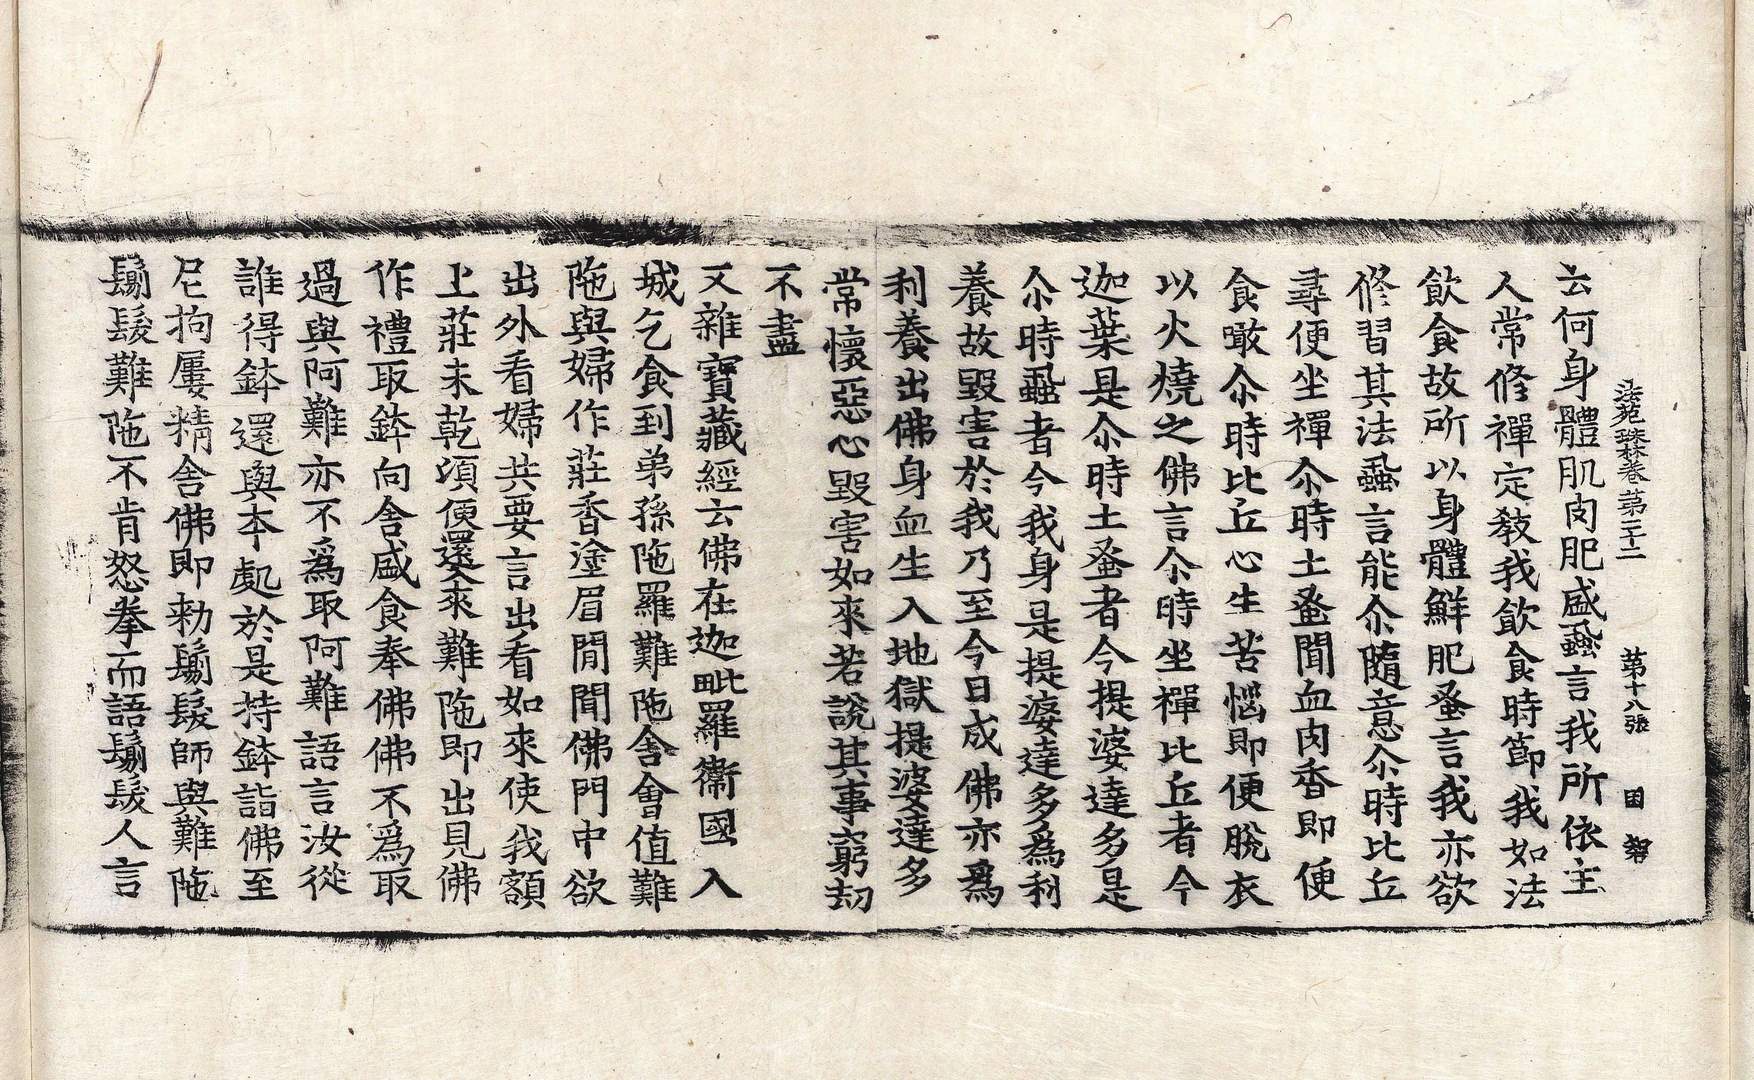 法苑珠林卷第二十二 第十八張
云何身體肌肉肥盛蝨言我所依主
人常修禪定教我飲食時節我如法
飲食故所以身體鮮肥蚤言我亦欲
修習其法蝨言能尒隨意尒時比丘
尋便坐禪尒時土蚤聞血肉香即便
食噉尒時比丘心生苦惱即便脫衣
以火燒之佛言尒時坐禪比丘者今
迦葉是尒時土蚤者今提婆達多是
尒時蝨者今我身是提婆達多爲利
養故毀害於我乃至今日成佛亦爲
利養出佛身血生入地獄提婆達多
常懷惡心毀害如來若說其事窮劫
不盡
又雜寶藏經云佛在迦毗羅衛國入
城乞食到弟孫陁羅難陁舍會值難
陁與婦作莊香塗眉閒聞佛門中欲
出外看婦共要言出看如來使我額
上莊未乾頃便還來難陁即出見佛
作禮取鉢向舍盛食奉佛佛不爲取
過與阿難亦不爲取阿難語言汝從
誰得鉢還與本處於是持鉢詣佛至
尼拘屢精舍佛即勑鬀髮師與難陁
鬀髮難陁不肯怒拳而語鬀髮人言